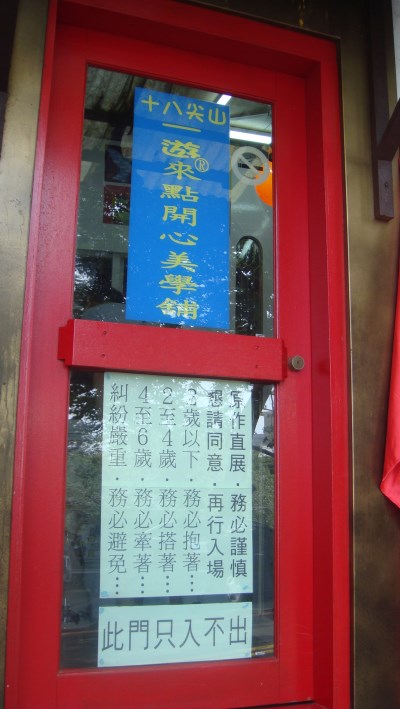 十八尖山
一游來點開心美學舖
®
原作直展．務必謹慎
懇請同意．再行入場
2歲以下．務必抱著…
2至4歲．務必搭著…
4至6歲．務必牽著…
糾紛嚴重．務必避免…
此門只入不出